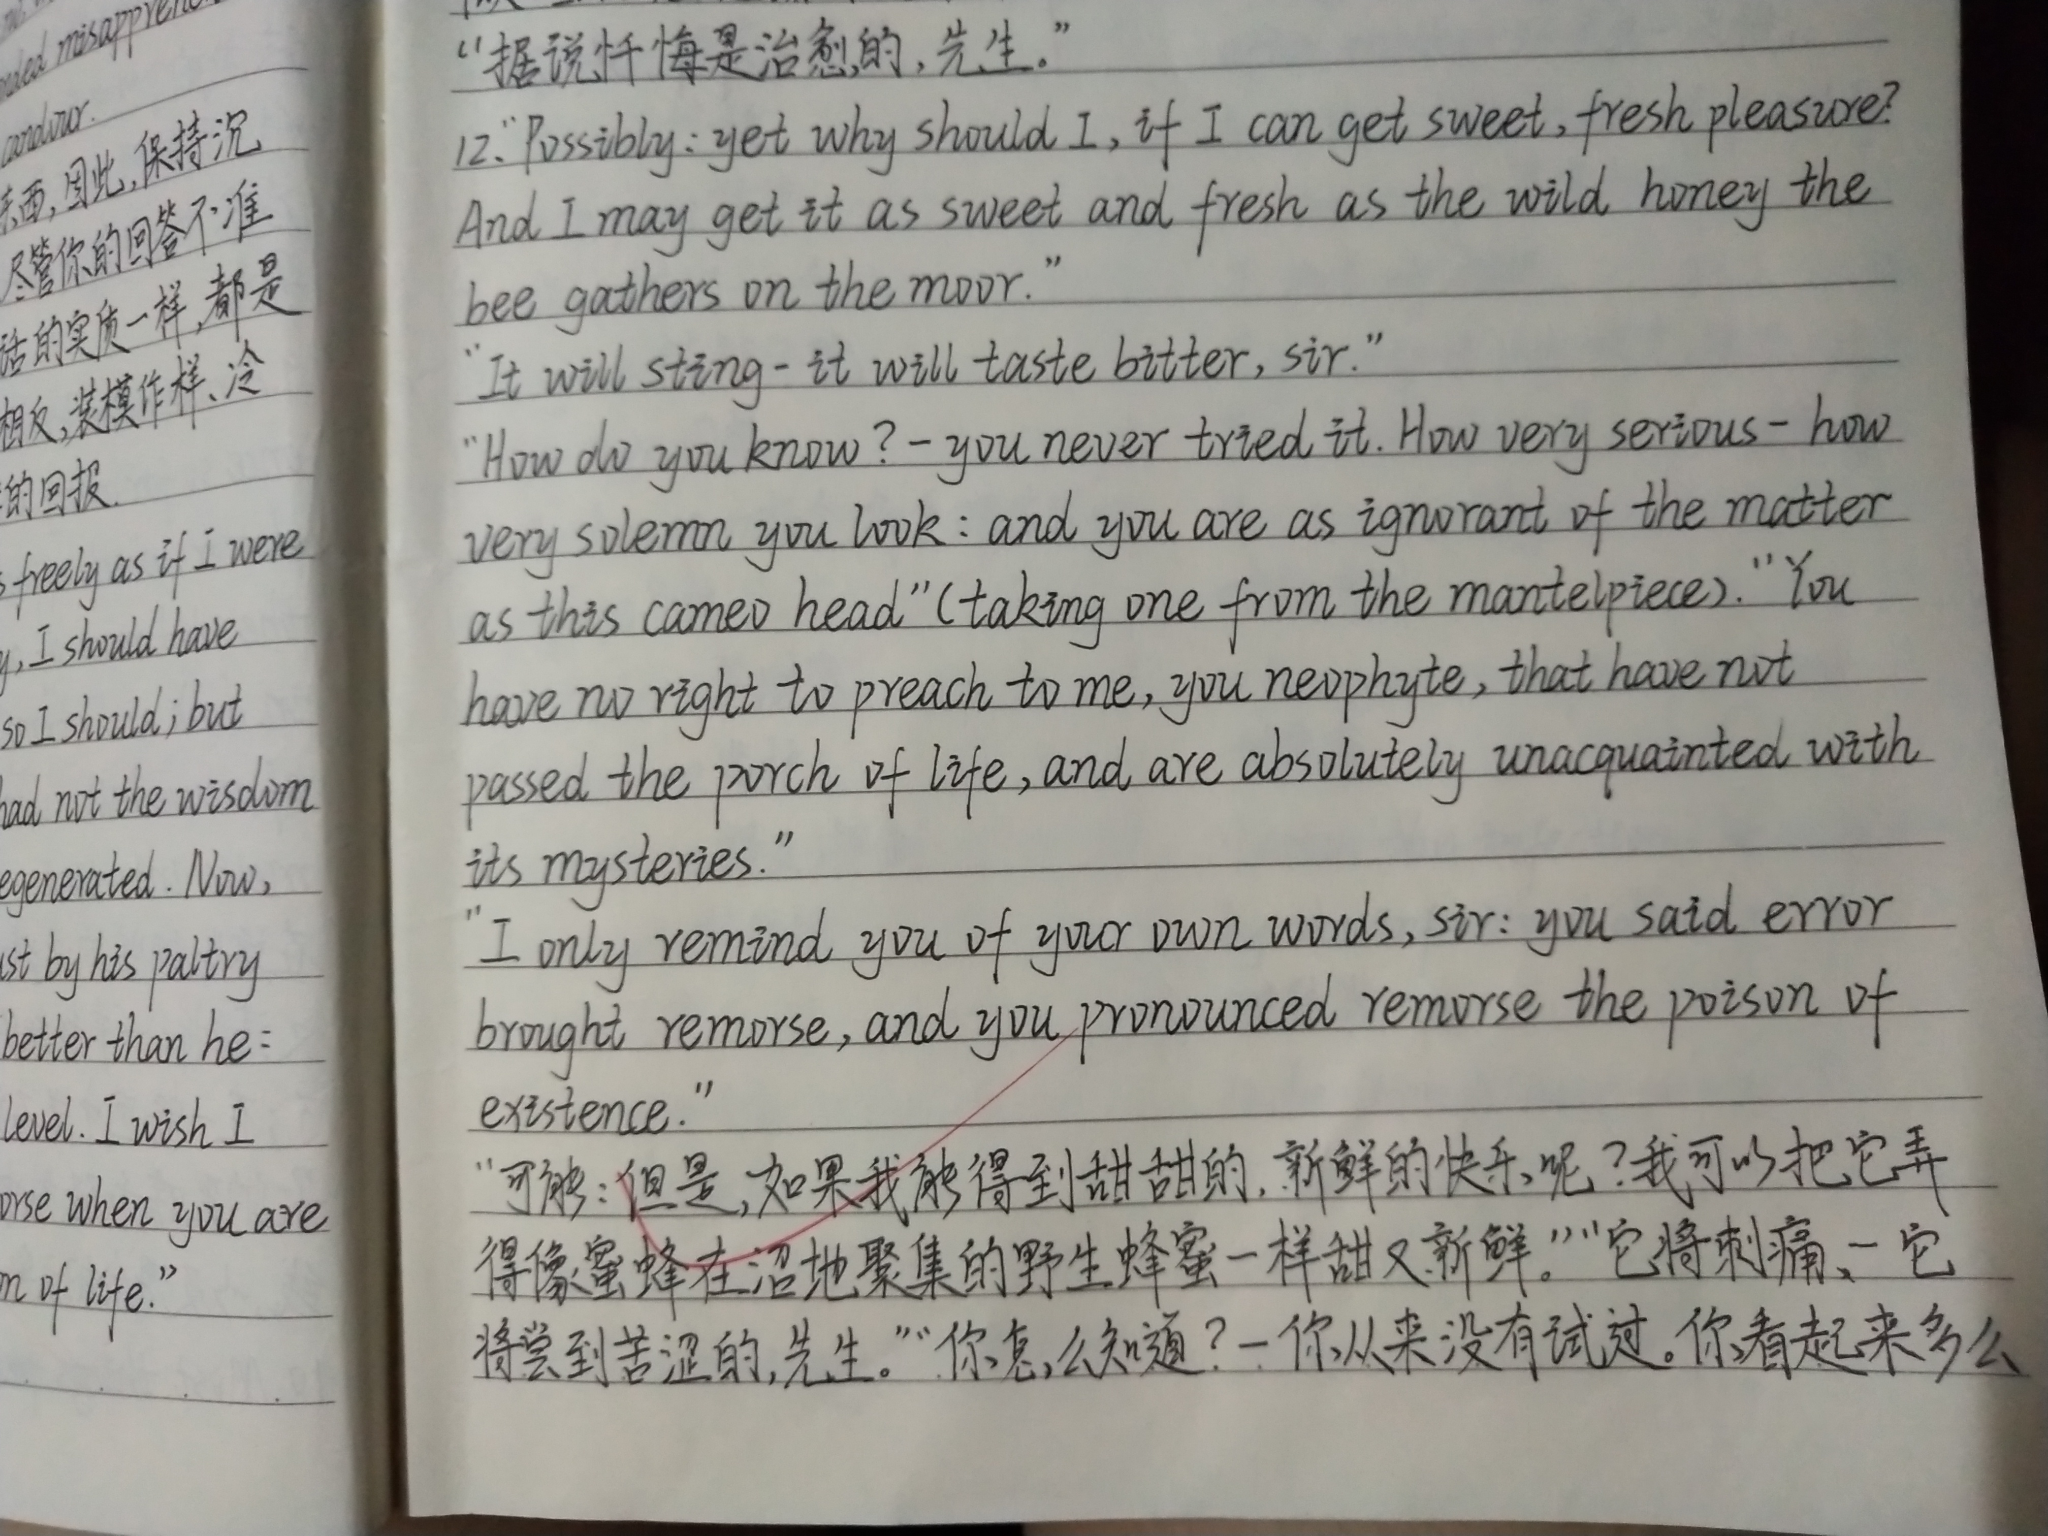 ended misapprehen
candour.
东西,因此,保持沉
尽管你的回答不准
话的实质一样,都是
相反,装模作样、冷
的回报.
s freely as if I were
y, I should have
so I should; but
had not the wisdom
egenerated. Now,
ust by his paltry
better than he:
level. I wish I
orse when you are
n of life."
"据说忏悔是治愈的,先生。"
12."Possibly: yet why should I, if I can get sweet, fresh pleasure?
And I may get it as sweet and fresh as the wild honey the
bee gathers on the moor."
"It will sting - it will taste bitter, sir."
"How do you know? - you never tried it. How very serious - how
very solemn you look: and you are as ignorant of the matter
as this cameo head" (taking one from the mantelpiece). "You
have no right to preach to me, you neophyte, that have not
passed the porch of life, and are absolutely unacquainted with
its mysteries."
"I only remind you of your own words, sir: you said error
brought remorse, and you pronounced remorse the poison of
existence."
"可能:但是,如果我能得到甜甜的,新鲜的快乐呢?我可以把它弄
得像蜜蜂在沼地聚集的野生蜂蜜一样甜又新鲜。""它将刺痛、-它
将尝到苦涩的,先生。""你怎么知道?-你从来没有试过。你看起来多么